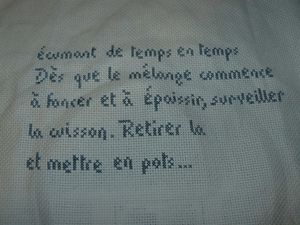 écumant de temps en temps
Dès que le mélange commence
à foncer et à Épaissir, surveiller
la cuisson. Retirer la
et mettre en pots...